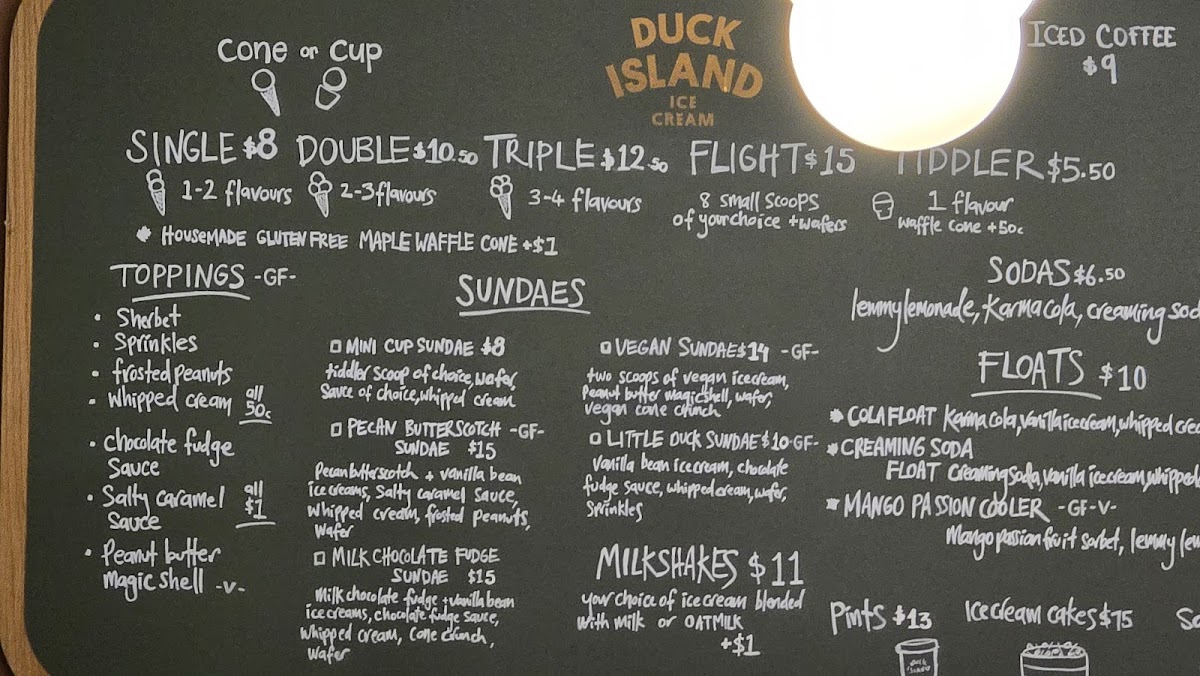 Cone or Cup
DUCK
ISLAND
ICE
CREAM
ICED COFFEE
$9
SINGLE $8
1-2 flavours
DOUBLE $10.50
2-3 flavours
TRIPLE $12.50
3-4 flavours
FLIGHT $15
8 small scoops
of your choice + wafers
TIDDLER $5.50
1 flavour
waffle cone +50c
* HOUSEMADE GLUTEN FREE MAPLE WAFFLE CONE +$1
TOPPINGS -GF-
• Sherbet
• Sprinkles
• frosted peanuts
• whipped cream
all
50c
• chocolate fudge
Sauce
• Salty caramel
Sauce
all
$1
• Peanut butter
magic shell -V-
SUNDAES
MINI CUP SUNDAE $8
tiddler scoop of choice, wafer,
Sauce of choice, whipped cream
PECAN BUTTERSCOTCH -GF-
SUNDAE $15
Pecan butterscotch + vanilla bean
ice creams, Salty caramel Sauce,
whipped cream, frosted peanuts,
wafer
MILK CHOCOLATE FUDGE
SUNDAE $15
Milk chocolate fudge + vanilla bean
ice creams, chocolate fudge sauce,
whipped cream, cone crunch,
wafer
VEGAN SUNDAE $14 -GF-
two scoops of vegan icecream,
Peanut butter magic shell, wafer,
vegan cone crunch
LITTLE DUCK SUNDAE $10-GF-
vanilla bean icecream, chocolate
fudge sauce, whipped cream, wafer,
Sprinkles
MILKSHAKES $11
your choice of ice cream blended
with milk or OATMILK
+$1
SODAS $6.50
lemmylemonade, Karma cola, creaming sod
FLOATS $10
* COLA FLOAT Karma cola, vanilla icecream, whipped crea
* CREAMING SODA
FLOAT Creaming Soda, vanilla icecream, whipped
* MANGO PASSION COOLER -GF-V-
Mango passionfruit sorbet, lemmy lem
Pints $13
Ice cream cakes $75
Sa
DUCK
ISLAND